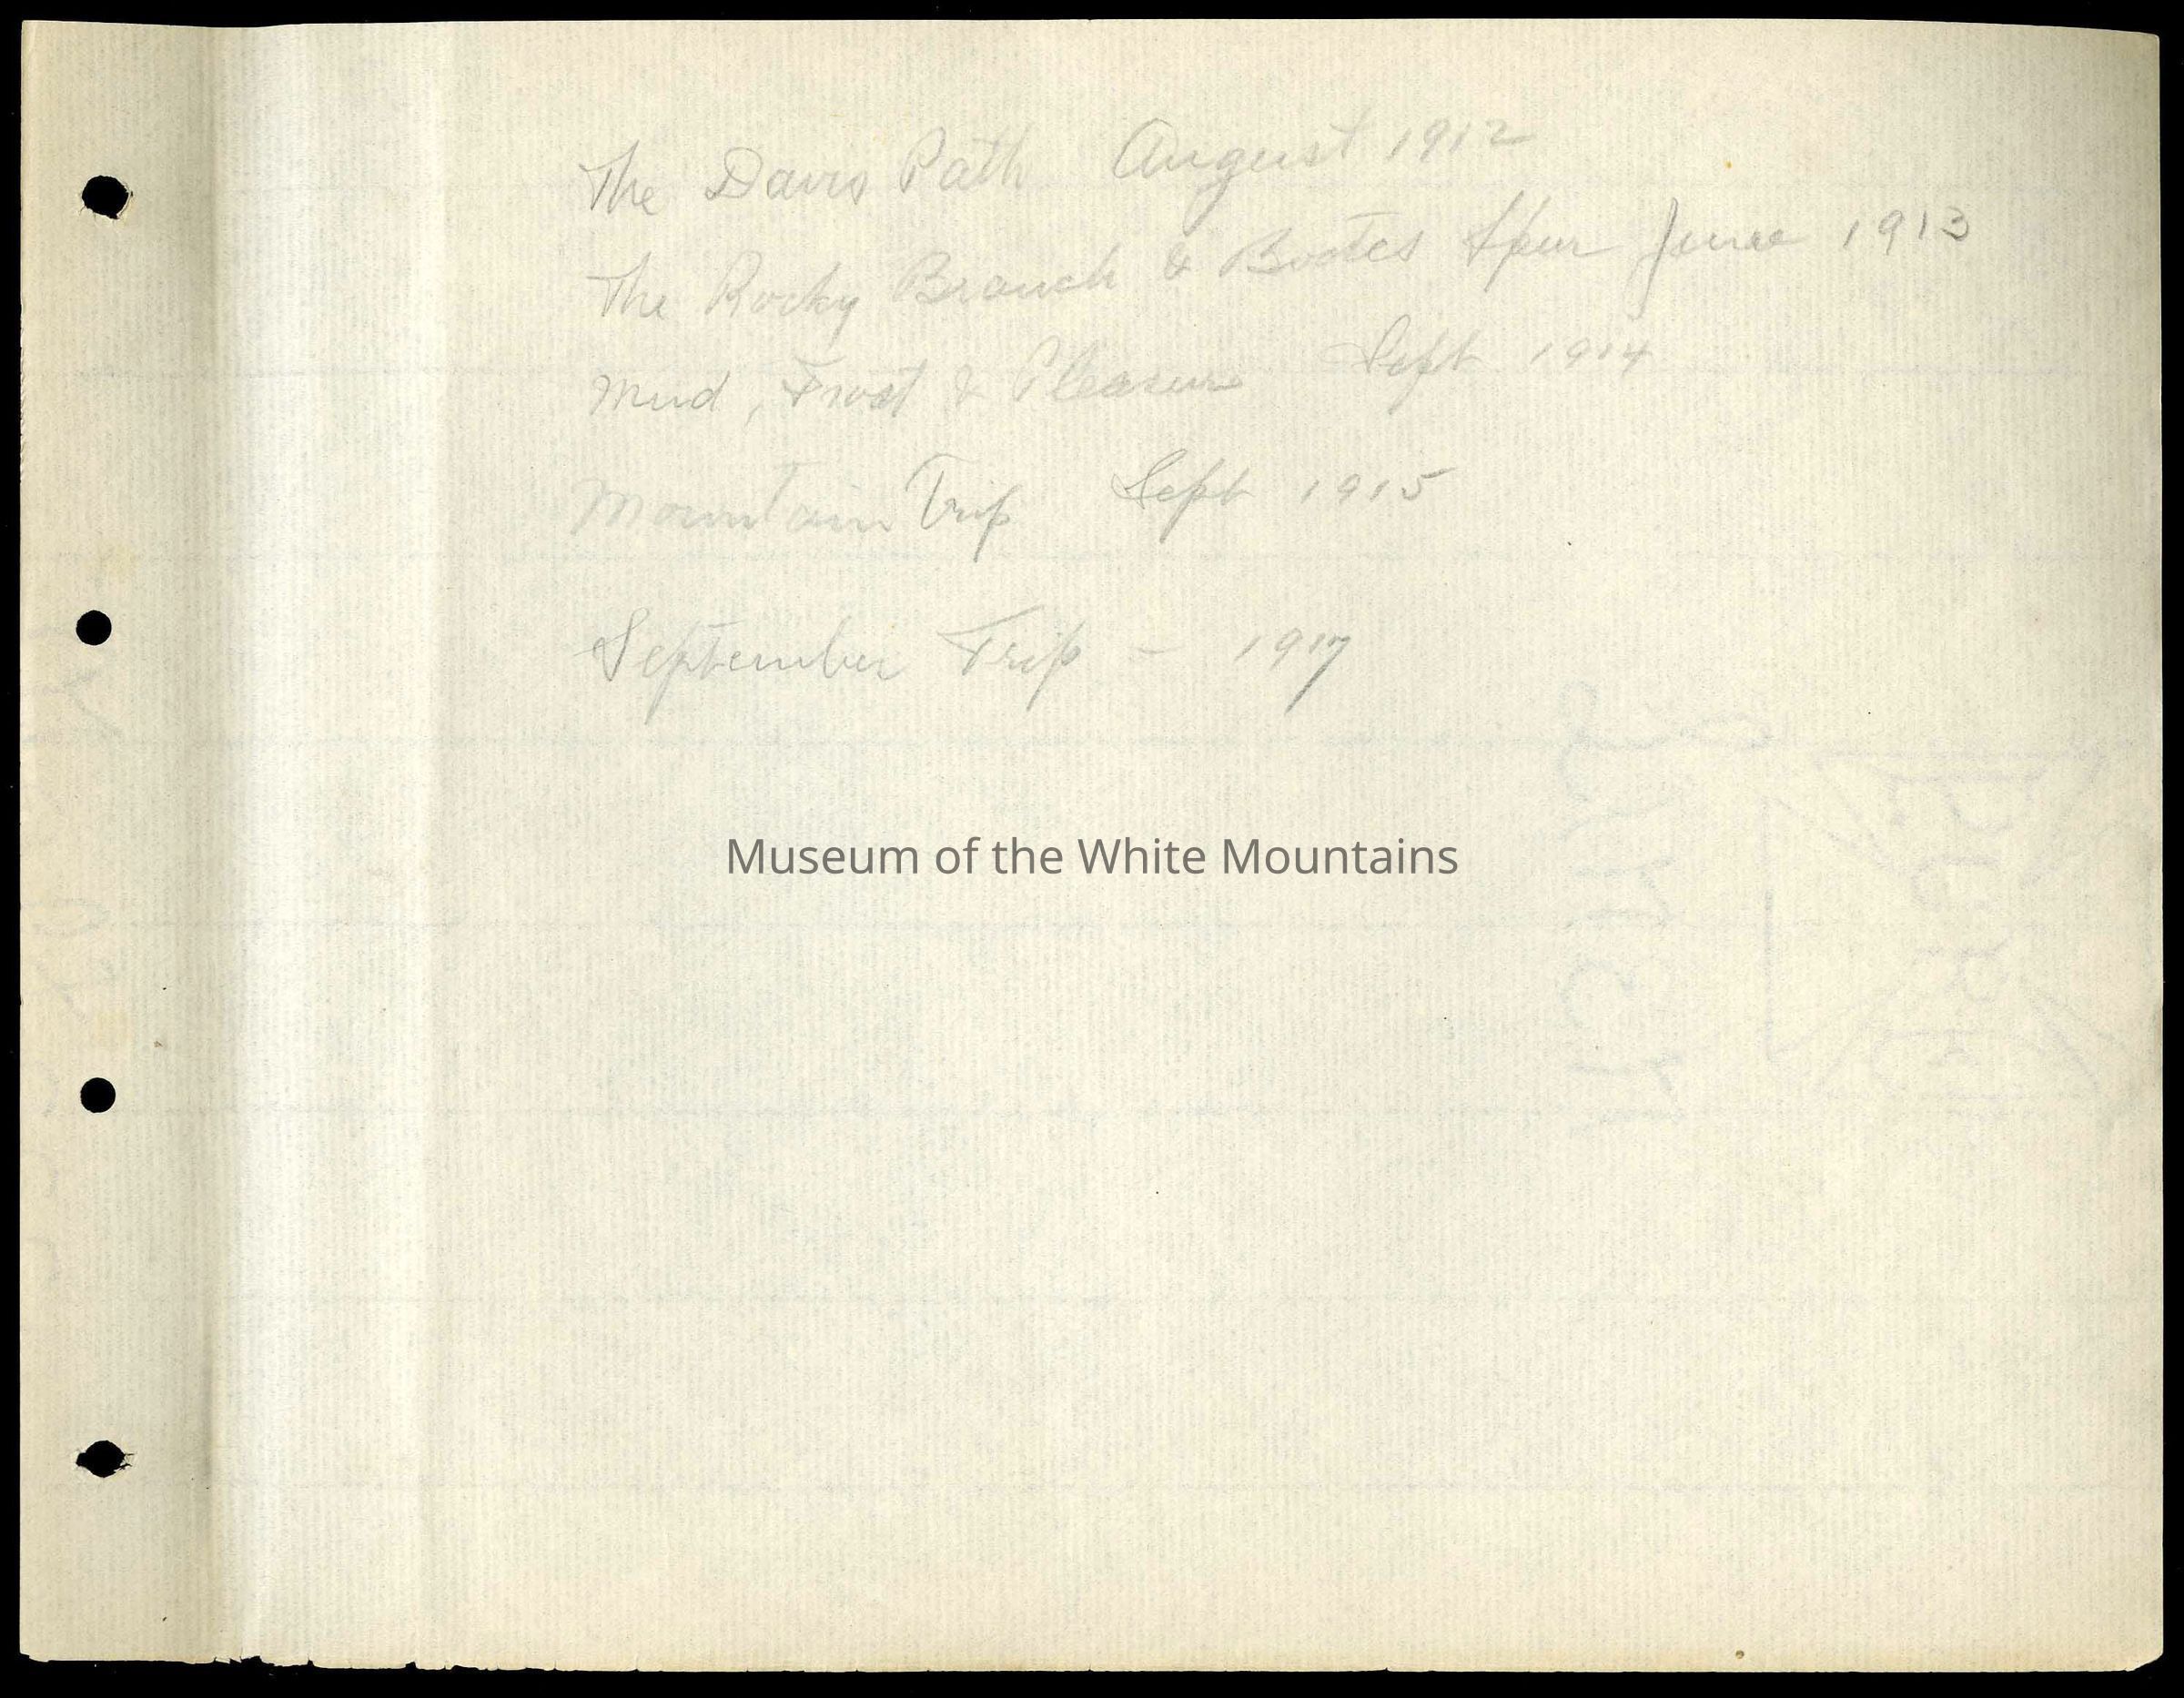 The Davis Path August 1912
The Rocky Branch & Bootes Spur June 1913
Mud, Frost & Pleasure Sept 1914
Mountain Trip Sept 1915
September Trip - 1917
Museum of the White Mountains